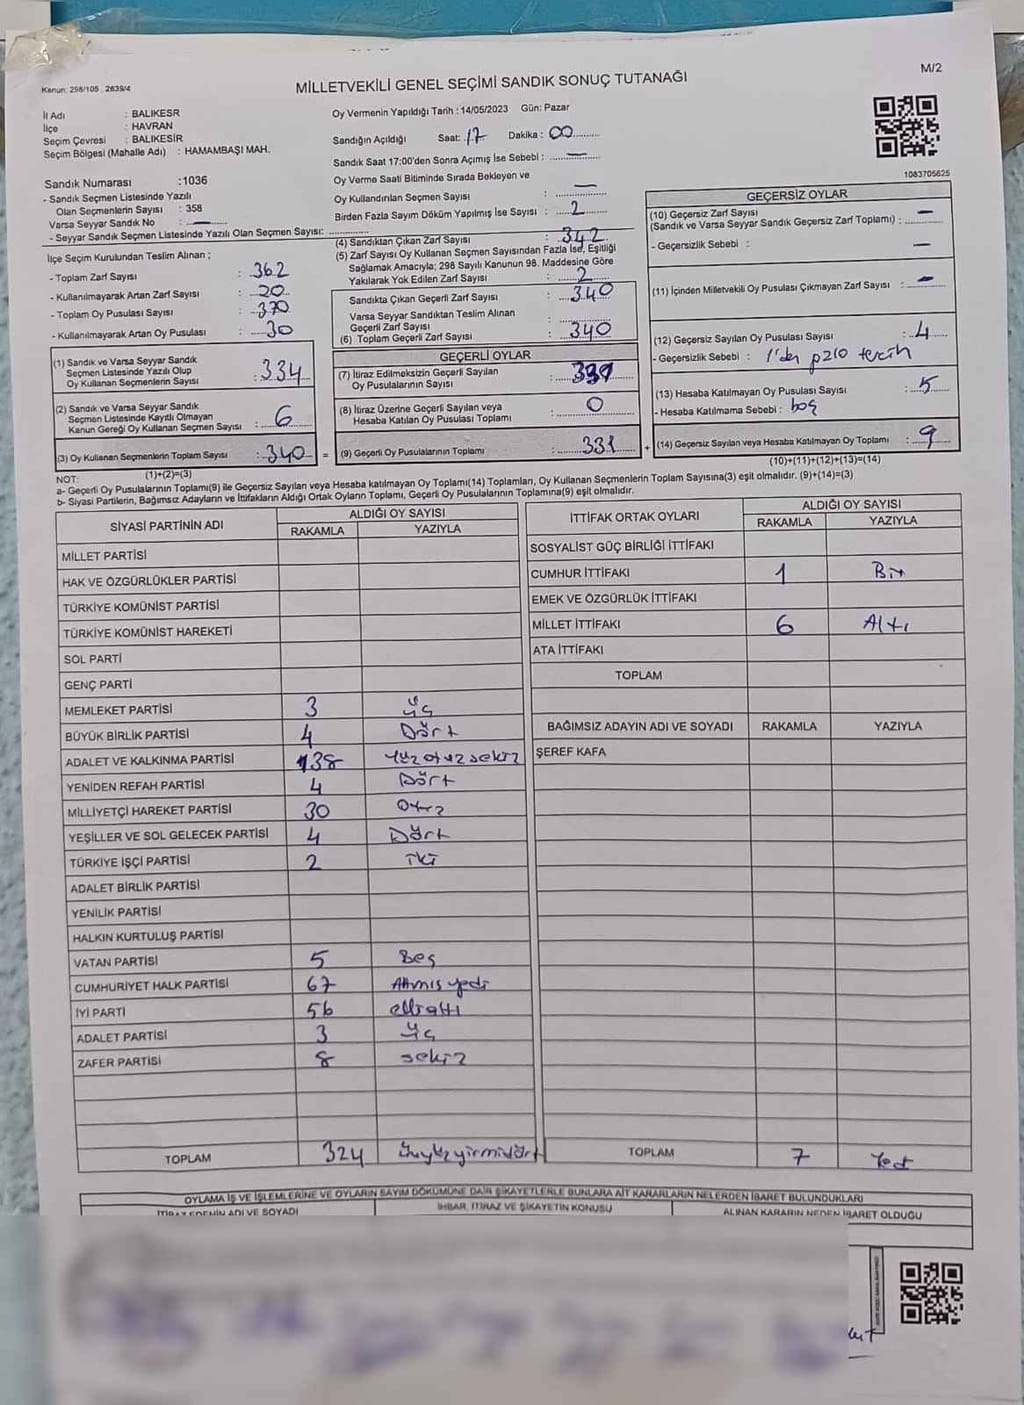 Kanun: 298/105 , 2839/4
MİLLETVEKİLİ GENEL SEÇİMİ SANDIK SONUÇ TUTANAĞI
M/2
İl Adı : BALIKESR
İlçe : HAVRAN
Seçim Çevresi : BALIKESİR
Seçim Bölgesi (Mahalle Adı) : HAMAMBAŞI MAH.
Oy Vermenin Yapıldığı Tarih : 14/05/2023 Gün: Pazar
Sandığın Açıldığı Saat: 17 Dakika : 00
Sandık Saat 17:00'den Sonra Açımış İse Sebebi : —
Oy Verme Saati Bitiminde Sırada Bekleyen ve
Oy Kullandırılan Seçmen Sayısı : —
Birden Fazla Sayım Döküm Yapılmış İse Sayısı : 2
1083705625
Sandık Numarası :1036
- Sandık Seçmen Listesinde Yazılı
Olan Seçmenlerin Sayısı : 358
Varsa Seyyar Sandık No : —
- Seyyar Sandık Seçmen Listesinde Yazılı Olan Seçmen Sayısı:
İlçe Seçim Kurulundan Teslim Alınan ;
- Toplam Zarf Sayısı : 362
- Kullanılmayarak Artan Zarf Sayısı : 20
- Toplam Oy Pusulası Sayısı : 370
- Kullanılmayarak Artan Oy Pusulası : 30
(1) Sandık ve Varsa Seyyar Sandık
Seçmen Listesinde Yazılı Olup
Oy Kullanan Seçmenlerin Sayısı : 334
(2) Sandık ve Varsa Seyyar Sandık
Seçmen Listesinde Kayıtlı Olmayan
Kanun Gereği Oy Kullanan Seçmen Sayısı : 6
(3) Oy Kullanan Seçmenlerin Toplam Sayısı : 340
(1)+(2)=(3)
(4) Sandıktan Çıkan Zarf Sayısı : 342
(5) Zarf Sayısı Oy Kullanan Seçmen Sayısından Fazla İse, Eşitliği
Sağlamak Amacıyla; 298 Sayılı Kanunun 98. Maddesine Göre
Yakılarak Yok Edilen Zarf Sayısı : 2
Sandıkta Çıkan Geçerli Zarf Sayısı : 340
Varsa Seyyar Sandıktan Teslim Alınan
Geçerli Zarf Sayısı :
(6) Toplam Geçerli Zarf Sayısı : 340
GEÇERLİ OYLAR
(7) İtiraz Edilmeksizin Geçerli Sayılan
Oy Pusulalarının Sayısı : 331
(8) İtiraz Üzerine Geçerli Sayılan veya
Hesaba Katılan Oy Pusulası Toplamı : 0
= (9) Geçerli Oy Pusulalarının Toplamı : 331
GEÇERSİZ OYLAR
(10) Geçersiz Zarf Sayısı
(Sandık ve Varsa Seyyar Sandık Geçersiz Zarf Toplamı) : —
- Geçersizlik Sebebi : —
(11) İçinden Milletvekili Oy Pusulası Çıkmayan Zarf Sayısı : —
(12) Geçersiz Sayılan Oy Pusulası Sayısı : 4
- Geçersizlik Sebebi : 1'den tercih
(13) Hesaba Katılmayan Oy Pusulası Sayısı : 5
- Hesaba Katılmama Sebebi : boş
+ (14) Geçersiz Sayılan veya Hesaba Katılmayan Oy Toplamı : 9
(10)+(11)+(12)+(13)=(14)
NOT:
a- Geçerli Oy Pusulalarının Toplamı(9) ile Geçersiz Sayılan veya Hesaba katılmayan Oy Toplamı(14) Toplamları, Oy Kullanan Seçmenlerin Toplam Sayısına(3) eşit olmalıdır. (9)+(14)=(3)
b- Siyasi Partilerin, Bağımsız Adayların ve İttifakların Aldığı Ortak Oyların Toplamı, Geçerli Oy Pusulalarının Toplamına(9) eşit olmalıdır.
SİYASİ PARTİNİN ADI ALDIĞI OY SAYISI
RAKAMLA YAZIYLA
MİLLET PARTİSİ
HAK VE ÖZGÜRLÜKLER PARTİSİ
TÜRKİYE KOMÜNİST PARTİSİ
TÜRKİYE KOMÜNİST HAREKETİ
SOL PARTİ
GENÇ PARTİ
MEMLEKET PARTİSİ 3 üç
BÜYÜK BİRLİK PARTİSİ 4 Dört
ADALET VE KALKINMA PARTİSİ 138 Yüzotuzsekiz
YENİDEN REFAH PARTİSİ 4 Dört
MİLLİYETÇİ HAREKET PARTİSİ 30 Otuz
YEŞİLLER VE SOL GELECEK PARTİSİ 4 Dört
TÜRKİYE İŞÇİ PARTİSİ 2 iki
ADALET BİRLİK PARTİSİ
YENİLİK PARTİSİ
HALKIN KURTULUŞ PARTİSİ
VATAN PARTİSİ 5 Beş
CUMHURİYET HALK PARTİSİ 67 Atmış yedi
İYİ PARTİ 56 elli altı
ADALET PARTİSİ 3 üç
ZAFER PARTİSİ 8 sekiz
TOPLAM 324 üçyüzyirmidört
İTTİFAK ORTAK OYLARI ALDIĞI OY SAYISI
RAKAMLA YAZIYLA
SOSYALİST GÜÇ BİRLİĞİ İTTİFAKI
CUMHUR İTTİFAKI 1 Bir
EMEK VE ÖZGÜRLÜK İTTİFAKI
MİLLET İTTİFAKI 6 Altı
ATA İTTİFAKI
TOPLAM
BAĞIMSIZ ADAYIN ADI VE SOYADI RAKAMLA YAZIYLA
ŞEREF KAFA
TOPLAM 7 Yedi
OYLAMA İŞ VE İŞLEMLERİNE VE OYLARIN SAYIM DÖKÜMÜNE DAİR ŞİKAYETLERLE BUNLARA AİT KARARLARIN NELERDEN İBARET BULUNDUKLARI
İTİRAZ EDENİN ADI VE SOYADI İHBAR, İTİRAZ VE ŞİKAYETİN KONUSU ALINAN KARARIN NEDEN İBARET OLDUĞU